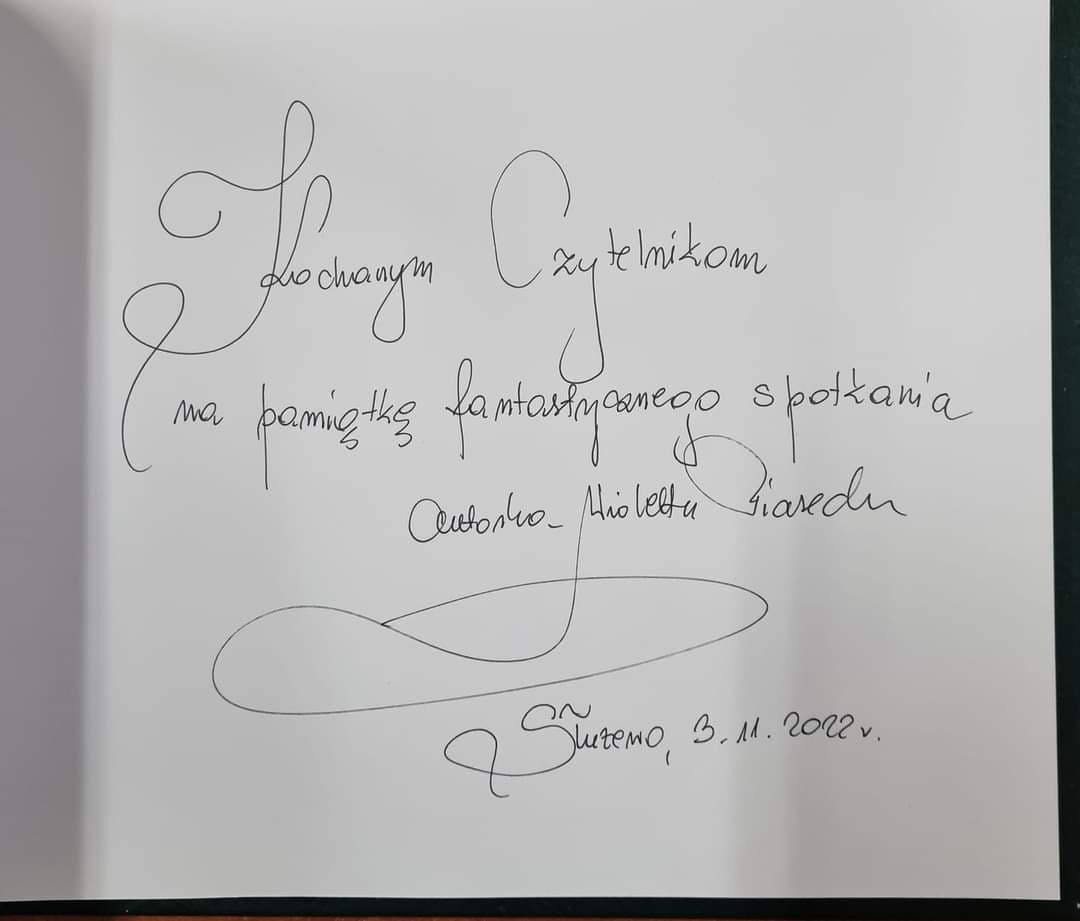 Kochanym Czytelnikom
na pamiątkę fantastycznego spotkania
autorka Wioletta Piasecka
Służewo, 3.11.2022 r.